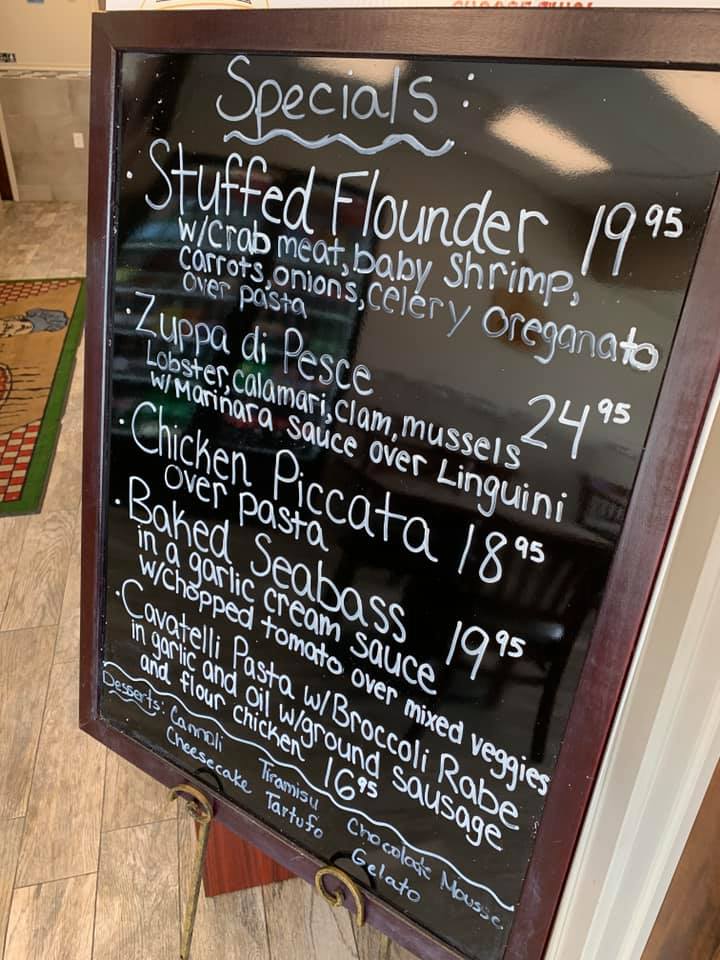 Specials:
· Stuffed Flounder 19 95
w/Crab meat, baby Shrimp,
Carrots, onions, celery oreganato
over pasta
· Zuppa di Pesce
Lobster, calamari, clam, mussels 24 95
w/Marinara sauce over Linguini
· Chicken Piccata 18 95
over pasta
· Baked Seabass 19 95
in a garlic cream sauce
w/chopped tomato over mixed veggies
· Cavatelli Pasta w/Broccoli Rabe
in garlic and oil w/ground sausage
and flour chicken 16 95
Desserts: Cannoli Tiramisu Chocolate Mousse
Cheesecake Tartufo Gelato